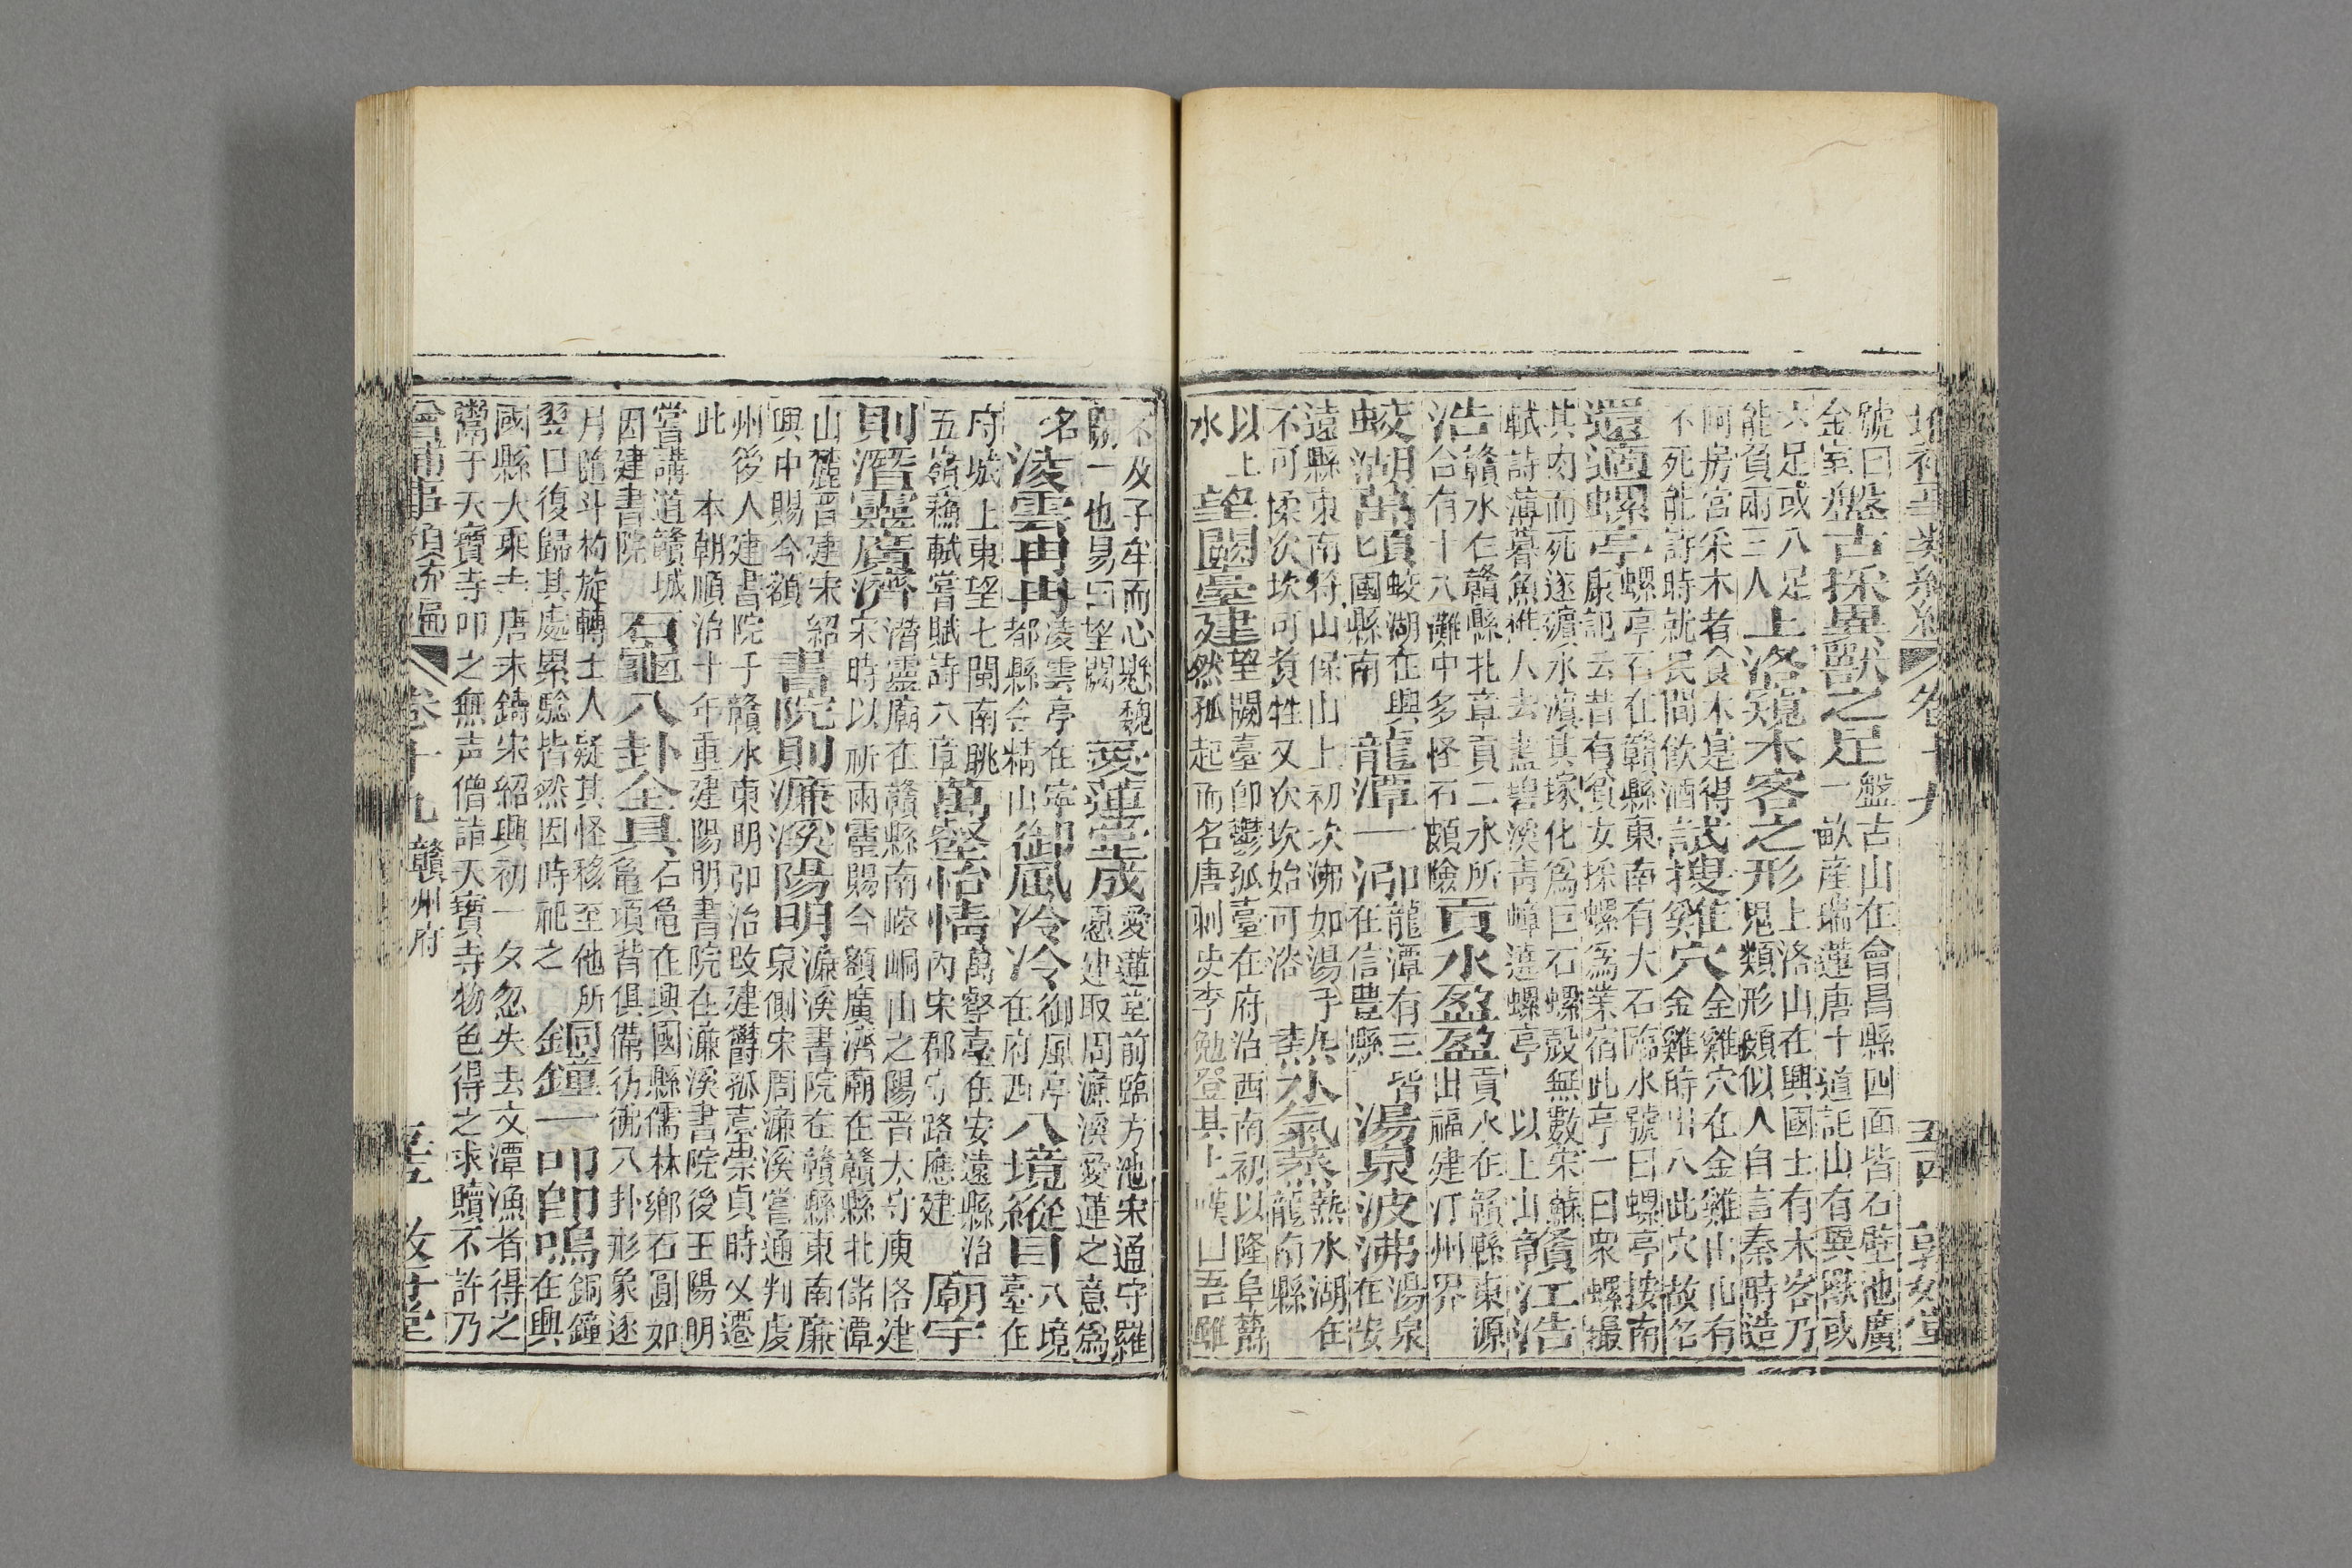 增補事類統編 卷十九 五四 敦好堂
號曰
金室
盤古採異獸之足
盤古山在會昌縣四面皆石壁池廣
一畝產瑞蓮唐十道記山有異獸或
六足或八足
能負兩三人
上洛窺木客之形
上洛山在興國士有木客乃
鬼類形頗似人自言秦時造
阿房宮采木者食木實得
不死能詩時就民間飲酒
試搜雞穴
金雞穴在金雞山山有
金雞時出入此穴故名
還適螺亭
螺亭石在贛縣東南有大石臨水號曰螺亭按南
康記云昔有貧女採螺爲業宿此亭一曰衆螺撮
其肉而死遂濱水濵其塚化爲巨石螺殼無數宋蘇
軾詩薄暮魚樵人去盡碧溪青嶂遶螺亭 以上山
贛江浩
浩
贛水在贛縣北章貢二水所
合有十八灘中多怪石頗險
貢水盈盈
貢水在贛縣東源
出福建汀州界
蛟湖萬頃
蛟湖在興
國縣南
龍潭一泖
龍潭有三皆
在信豐縣
湯泉波沸
湯泉
在安
遠縣東南符山保山上初次沸如湯手
不可揉次坎可牲又次坎始可浴
熱水氣蒸
熱水湖在
龍南縣
以上
水
望闕臺建
望闕臺卽鬱孤臺在府治西南初以隆阜蔚
然孤起而名唐刺史李勉登其上嘆曰吾雖
不及子牟而心懸魏
闕一也易曰望闕
愛蓮堂成
愛蓮堂前臨方池宋通守羅
愿建取周濂溪愛蓮之意爲
名
淩雲冉冉
凌雲亭在寧
都縣金精山
御風冷冷
御風亭
在府西
八境縱目
八境
臺在
府城上東望七閩南眺
五嶺蘇軾嘗賦詩八章
萬壑怡情
萬壑臺在安遠縣治
內宋郡守路應建
廟宇
則潛靈廣濟
潛靈廟在贛縣南崆峒山之陽晉太守庾恪建
宋時以祈雨靈賜今額廣濟廟在贛縣北儲潭
山麓晉建宋紹
興中賜今額
書院則濂溪陽明
濂溪書院在贛縣東南廉
泉側宋周濂溪嘗通判虔
州後人建書院于贛水東明卽治改建鬱孤臺崇貞時又遷
此 本朝順治十年重建陽明書院在濂溪書院後王陽明
嘗講道贛城
因建書院
石龜八卦全具
石龜在興國縣儒林鄉石圓如
龜項背俱備彷彿八卦形象逐
月隨斗杓旋轉士人疑其怪移至他所
翌日復歸其處累驗皆然因時祀之
銅鐘一叩卽鳴
銅鐘
在興
國縣大乘寺唐末鑄宋紹興初一夕忽失去文潭漁者得之
鬻于天寶寺叩之無声僧詣天寶寺物色得之求贖不許乃
增補事類統編 卷十九 贛州府 五五 敦好堂